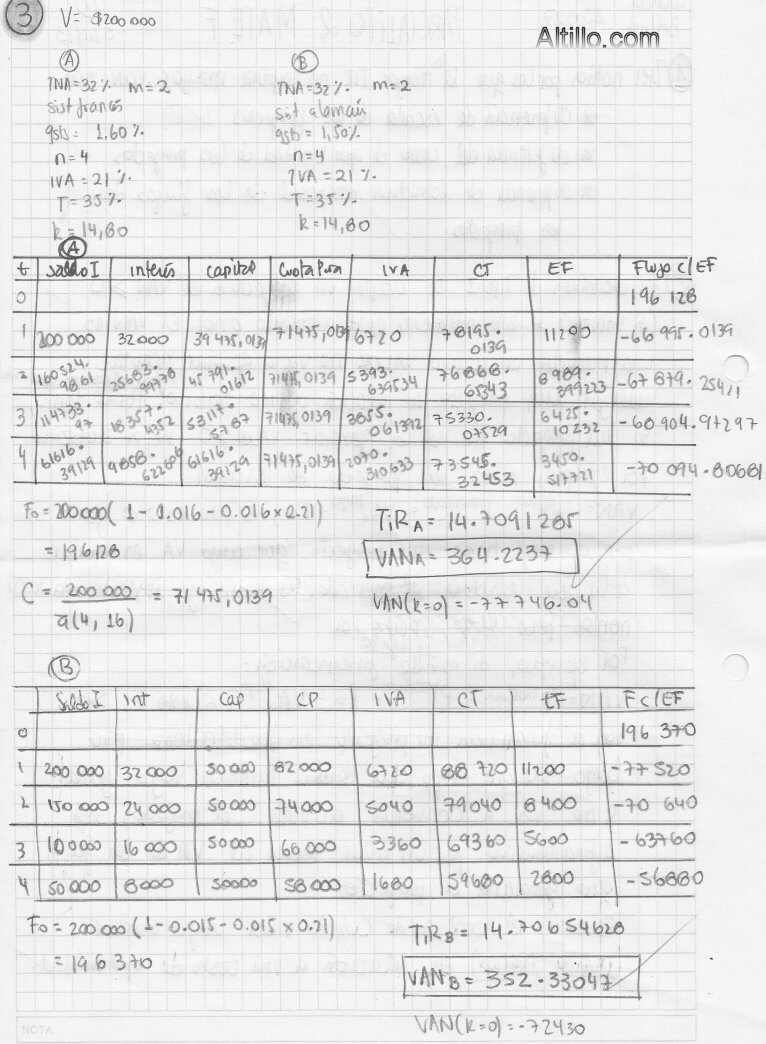 3 V= $200 000
Altillo.com
A B
TNA=32% m=2 TNA=32% m=2
sist francés sist alemán
gsb= 1,60% gsb= 1,50%
n=4 n=4
IVA=21% IVA=21%
T=35% T=35%
k=14,80 k=14,80
A
t Saldo I interés capital Cuota Pura IVA CT EF Flujo c/EF
0 196 128
1 200 000 32000 39 475,0139 71475,0139 6720 78195.0139 11200 -66 995.0139
2 160524.9861 25683.99778 45 791.01612 71475,0139 5393.639534 76868.65343 8989.399223 -67 879.25421
3 114733.97 18357.4352 53117.5787 71475,0139 3855.061392 75330.07529 6425.10232 -68 904.97297
4 61616.39129 9858.622606 61616.39129 71475,0139 2070.310633 73545.32453 3450.517721 -70 094.80681
F0=200000( 1- 0.016-0.016x0.21) TIRA= 14.7091285
= 196128 VANA= 364.2237
C = 200 000 / a(4, 16) = 71 475,0139 VAN(k=0)=-77746.04
B
Saldo I Int Cap CP IVA CT EF F c/EF
0 196 370
1 200 000 32000 50000 82000 6720 88 720 11200 -77 520
2 150 000 24 000 50000 74000 5040 79040 8400 -70 640
3 100000 16 000 50000 66 000 3360 69360 5600 -63760
4 50 000 8000 50000 58 000 1680 59680 2800 -56880
F0= 200 000 (1-0.015-0.015x0.21) TIRB= 14.70654628
= 196 370 VANB= 352.33047
VAN(k=0)=-72430
NOTA